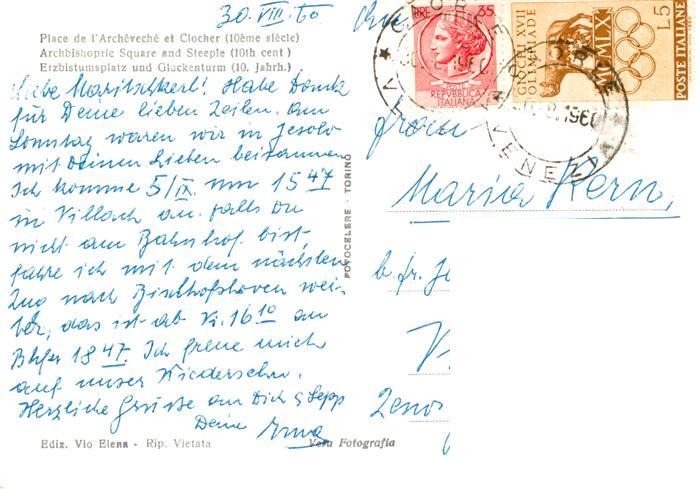 30. VIII. 60
Place de l'Archêveché et Clocher (10ème siècle)
Archbishopric Square and Steeple (10th cent )
Erzbistumsplatz und Glockenturm (10. Jahrh.)
Liebe Maritschkerl! Habe Dank
für Deine lieben Zeilen. Am
Sonntag waren wir in Jesolo
mit Deinen Lieben beisammen
Ich komme 5/IX. um 15 47
in Villach an. Falls Du
nicht am Bahnhof bist,
fahre ich mit dem nächsten
Zug nach Bischofshoven wei-
ter, das ist ab Vi. 16 10 an
Bhfen 18 47. Ich freue mich
auf unser Wiedersehn.
Herzliche Grüße an Dich & Sepp
Deine Erna
Ediz. Vio Elena - Rip. Vietata
Vera Fotografia
FOTOCELERE - TORINO
LIRE 35
POSTE
REPVBBLICA
ITALIANA
GIOCHI XVII
OLIMPIADE
ROMA MCMLX
L.5
POSTE ITALIANE
CAORLE
1960
VENEZIA
CAORLE
1960
VENEZIA
An
Frau
Maria Kern,
b. fr. J
V
Zeno